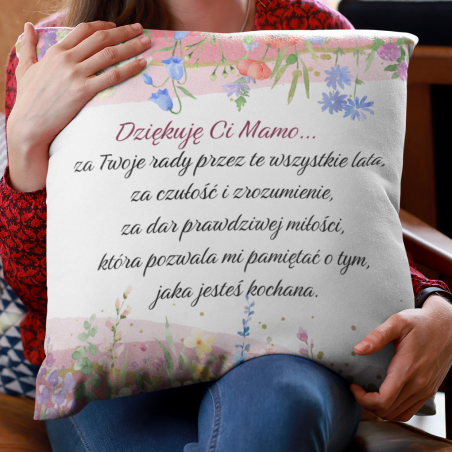 Dziękuję Ci Mamo...
za Twoje rady przez te wszystkie lata,
za czułość i zrozumienie,
za dar prawdziwej miłości,
która pozwala mi pamiętać o tym,
jaka jesteś kochana.